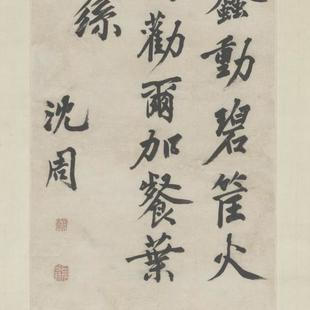 蠢動碧筐火
勸爾加餐葉
絲
沈周